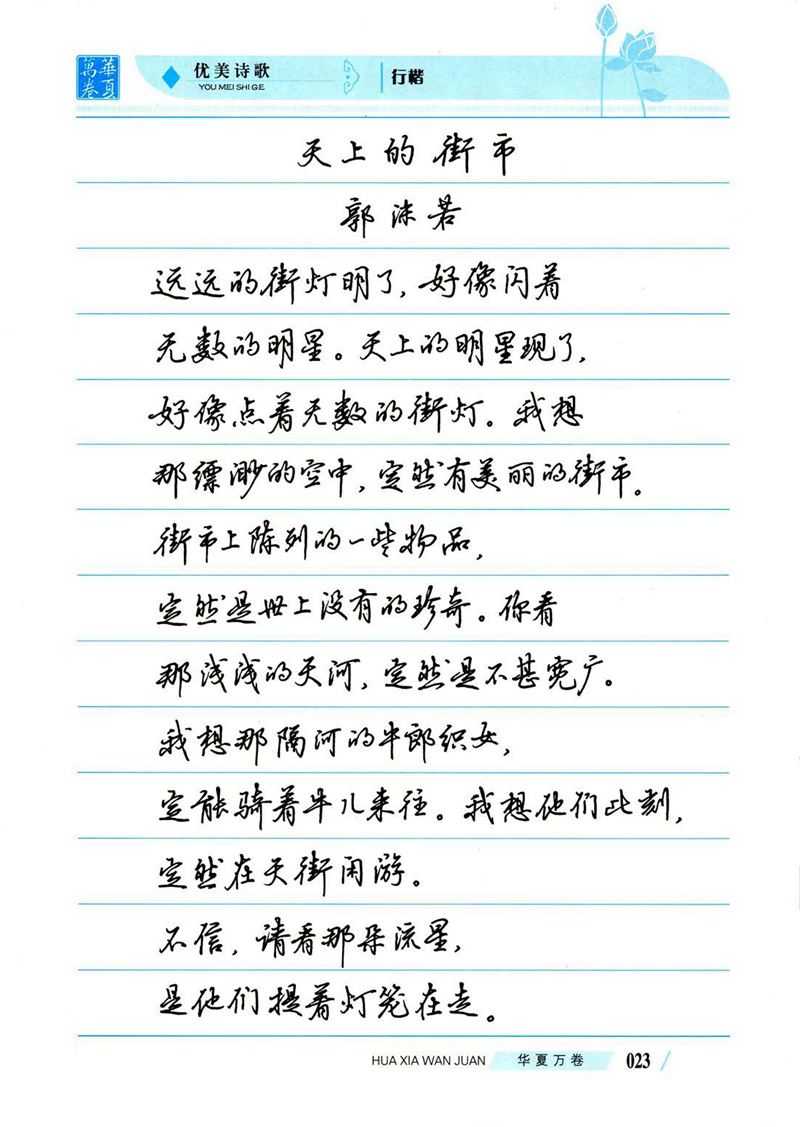 華夏萬卷
优美诗歌
YOU MEI SHI GE
行楷
天上的街市
郭沫若
远远的街灯明了，好像闪着
无数的明星。天上的明星现了，
好像点着无数的街灯。我想
那缥渺的空中，定然有美丽的街市。
街市上陈列的一些物品，
定然是世上没有的珍奇。你看
那浅浅的天河，定然是不甚宽广。
我想那隔河的牛郎织女，
定能骑着牛儿来往。我想他们此刻，
定然在天街闲游。
不信，请看那朵流星，
是他们提着灯笼在走。
HUA XIA WAN JUAN
华夏万卷
023